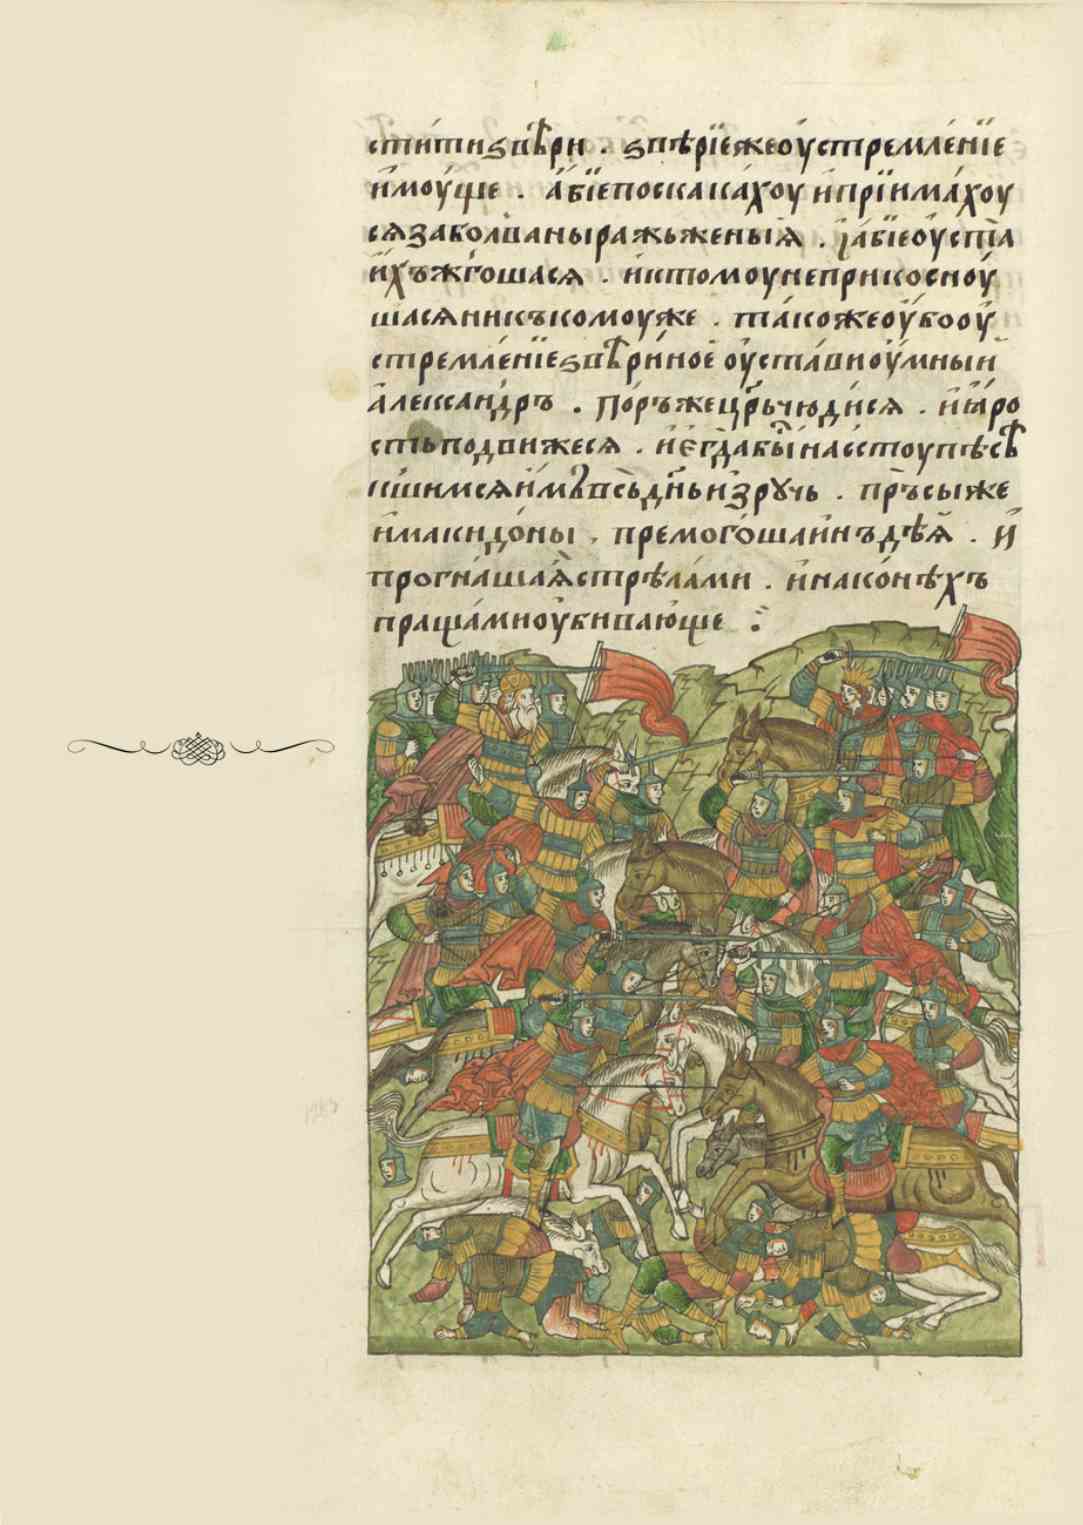 стити ѕвѣри . ѕвѣрїе же оустремле́нїе
и҆моу́ще . а҆́бїе поскака́хоу и҆ прїима́хоу
сѧ за болваны ражьженыѧ . ꙗ҆́бїе оу҆ста
и҆́хъ ж̾го́шасѧ . и҆ ктомоу не прикосноу́
шасѧ никъ комоу же . та́коже оу҆́бо оу
стремле́нїе ѕвѣри́ное оу҆ста́ви оу҆́мныи
а҆леѯа́ндръ . по́ръ же цр҃ь чюди́сѧ . и҆ ꙗ҆́ро
стью подвижесѧ . и҆ є҆гда̀ бы́ на состоупъ съ
шимсѧ и҆́мъ в̾ дн҃ь и҆з̾ рꙋчь . пръсы же
и҆ макидо́ны премого́ша и҆нъдѣѧ . и҆
прогна́ша ѧ҆̀ стрѣла́ми . и҆ на ко́нѣхъ
пра́щами оу҆бива́юще :